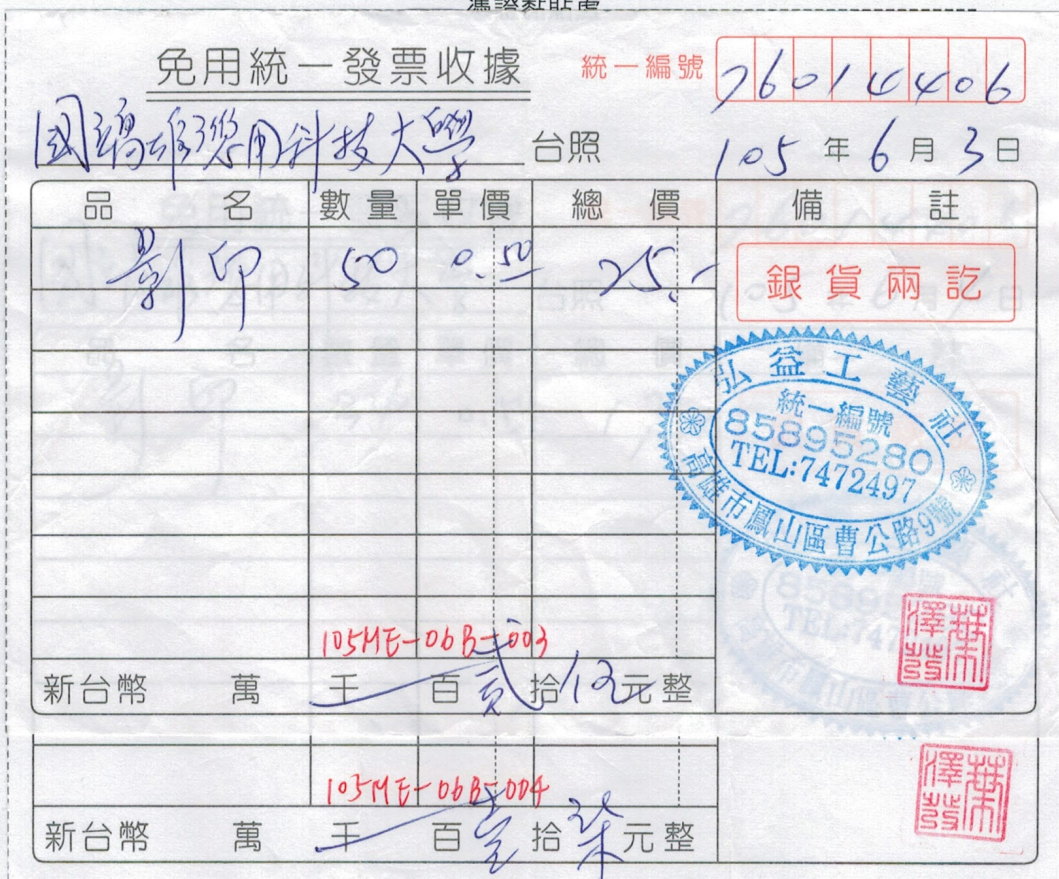 憑證黏貼處
免用統一發票收據
統一編號 76014406
國立高雄應用科技大學 台照
105年6月3日
品名 數量 單價 總價 備註
影印 50 0.50 25.-
銀貨兩訖
弘益工藝社
統一編號
85895280
TEL:7472497
高雄市鳳山區曹公路9號
105ME-06B-003
新台幣 萬 千 百 貳 拾 伍 元整
105ME-06B-004
新台幣 萬 千 百 壹 拾 柒 元整